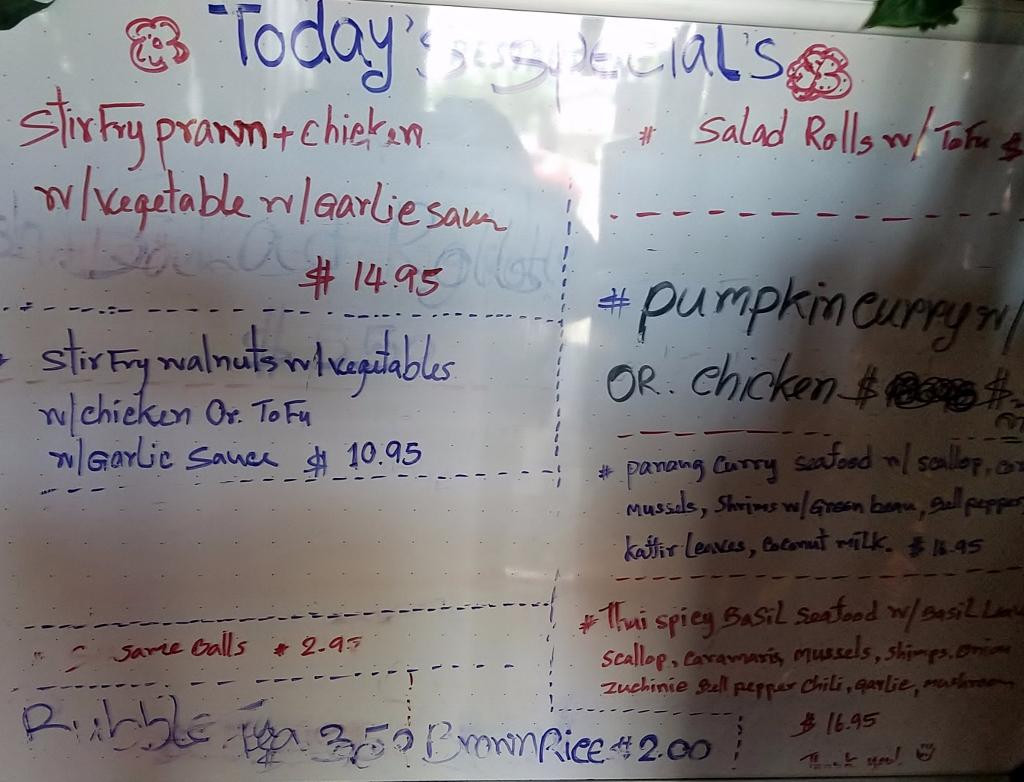 Today's Special's
StirFry prawn + chicken
w/vegetable w/Garlic
$ 14.95
StirFry walnuts w/vegetables
w/chicken Or. ToFu
w/Garlic Sauce $ 10.95
Same Balls $ 2.95
Bubble Tea 3.50
BrownRice $ 2.00
# Salad Rolls w/ ToFu $
# pumpkin curry w/
OR. chicken $ $
# panang Curry seafood w/ scallop,
mussels, Shrims w/Green bean, Bell pepper
kaffir Leaves, coconut milk. $ 16.95
# Thai spicy BaSil Seafood w/ BaSil
scallop, caramaris, mussels, Shimps, onion
zuchinie Bell pepper chili, garlic, mushroom
$ 16.95
Thank you!